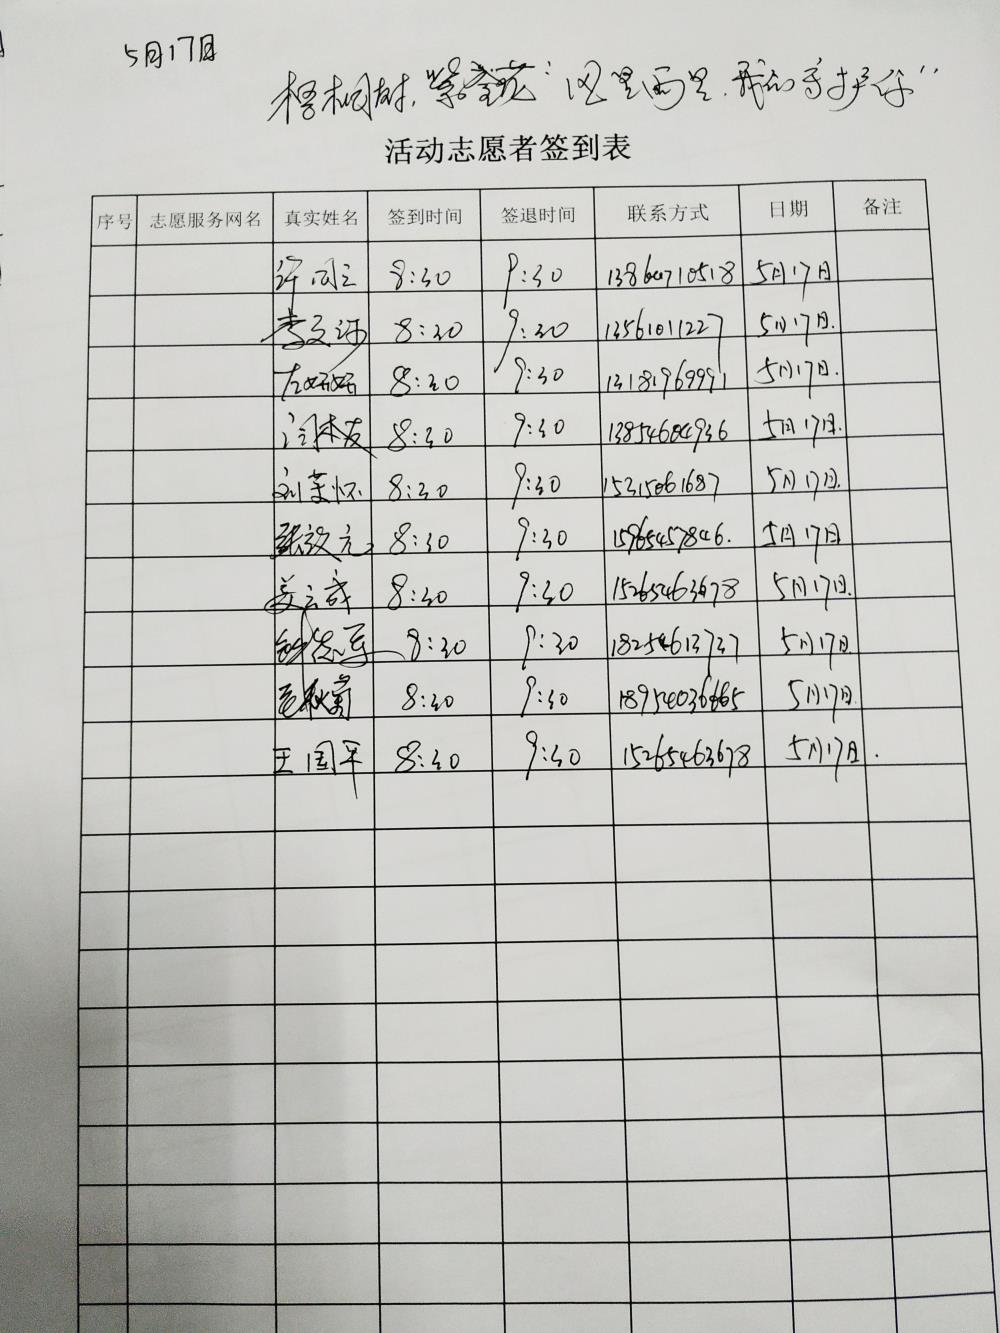 5月17日
梧桐树,紫荆花"风里雨里,我们守护你"
活动志愿者签到表
序号 志愿服务网名 真实姓名 签到时间 签退时间 联系方式 日期 备注
8:30 9:30 5月17日
李文沛 8:30 9:30 13561011227 5月17日.
左妍妍 8:30 9:30 13181969991 5月17日.
闫林友 8:30 9:30 13854604936 5月17日.
刘茂怀 8:30 9:30 15315061687 5月17日.
张效元 8:30 9:30 15965457846. 5月17日
姜云成 8:30 9:30 15265463678 5月17日.
钟志军 8:30 9:30 18254613737 5月17日.
8:30 9:30 18954036665 5月17日.
王国平 8:30 9:30 15265463678 5月17日.